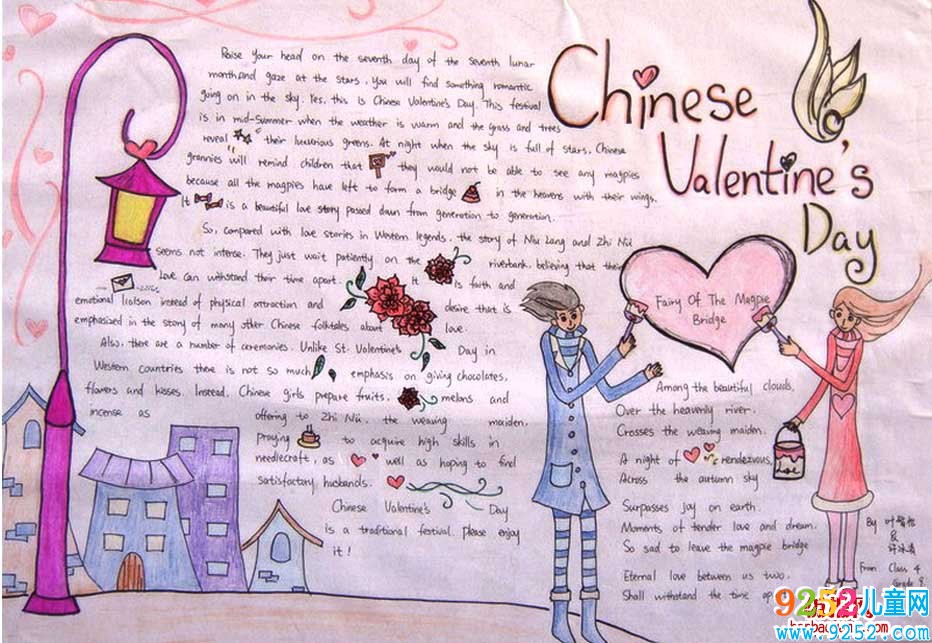 Chinese
Valentine's
Day
Raise your head on the seventh day of the seventh lunar
month and gaze at the stars. You will find something romantic
going on in the sky. Yes, this is Chinese Valentine's Day. This festival
is in mid-summer when the weather is warm and the grass and trees
reveal their luxurious greens. At night when the sky is full of stars, Chinese
grannies will remind children that they would not be able to see any magpies
because all the magpies have left to form a bridge in the heavens with their wings.
It is a beautiful love story passed down from generation to generation.
So, compared with love stories in Western legends, the story of Niu Lang and Zhi Nü
seems not intense. They just wait patiently on the riverbank, believing that their
Love can withstand their time apart. It is faith and
emotional liaison instead of physical attraction and desire that is
emphasized in the story of many other Chinese folktales about love.
Also, there are a number of ceremonies. Unlike St. Valentine's Day in
Western countries there is not so much emphasis on giving chocolates,
flowers and kisses. Instead, Chinese girls prepare fruits, melons and
incense as offering to Zhi Nü, the weaving maiden,
praying to acquire high skills in
needlecraft, as well as hoping to find
satisfactory husbands.
Chinese Valentine's Day
is a traditional festival. Please enjoy
it!
Fairy Of The Magpie
Bridge
Among the beautiful clouds,
Over the heavenly river,
Crosses the weaving maiden.
A night of rendezvous,
Across the autumn sky
Surpasses joy on earth.
Moments of tender love and dream,
So sad to leave the magpie bridge
Eternal love between us two,
Shall withstand the time
love
By
From: Class 4
Grade 8
9252儿童网
www.9252.com